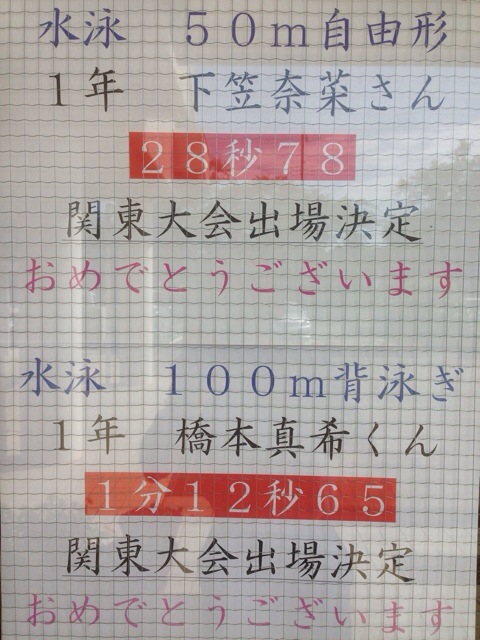 水泳　５０ｍ自由形
１年　下笠奈菜さん
２８秒７８
関東大会出場決定
おめでとうございます
水泳　１００ｍ背泳ぎ
１年　橋本真希くん
１分１２秒６５
関東大会出場決定
おめでとうございます